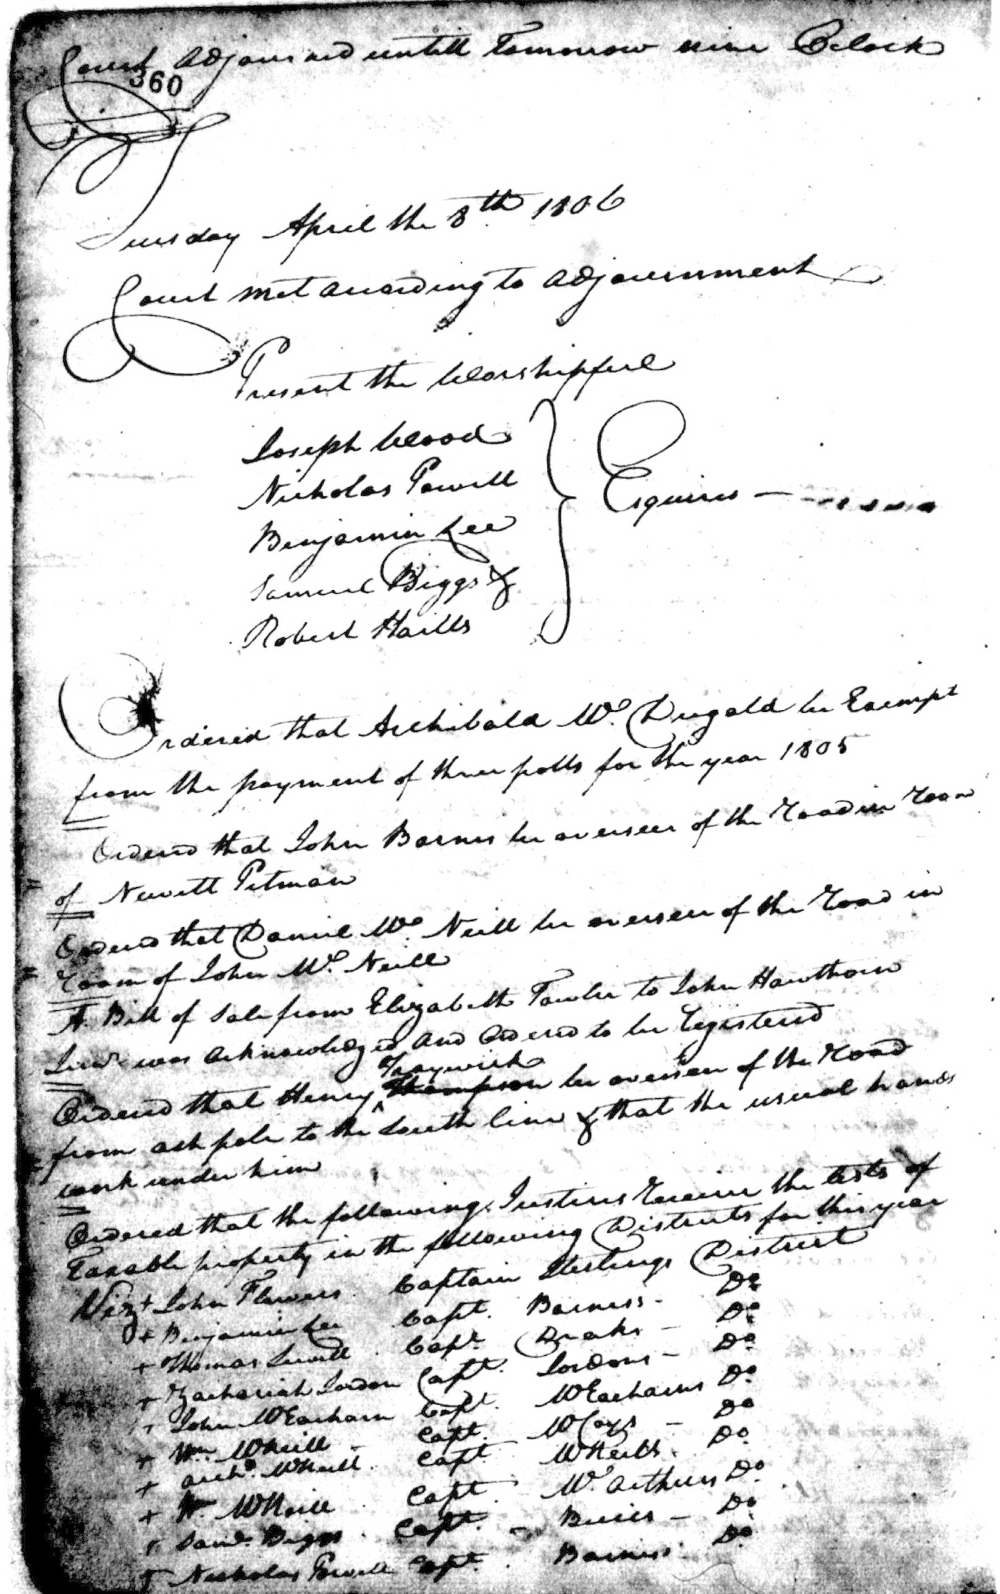 Court adjourned untill Tomorrow nine Oclock
360
Tuesday April the 8th 1806
Court met according to adjournment
Present the Worshipfull
Joseph Wood
Nicholas Powell
Benjamin Lee
Samuel Biggs &
Robert Haills
Esquires
Ordered that Archibald Mc. Dugald be Exempt
from the payment of three polls for the year 1805
Ordered that John Barnes be overseer of the Road in Room
of Newitt Pitman
Ordered that Daniel Mc. Neill be overseer of the Road in
Room of John Mc. Neill
A Bill of Sale from Elizabeth Fowler to John Hawthorn
was acknowledged and Ordered to be Registered
Traywick
Ordered that Henry Thompson be overseer of the Road
from ash pole to the South line & that the usual hands
work under him
Ordered that the following Justices Receive the lists of
Taxable property in the following Districts for this year
Viz + John Flowers Captain Sterlings District
+ Benjamin Lee Capt. Barness Do
+ Thomas Sewell Capt. Drakes Do
+ Zachariah Jordon Capt. Jordons Do
+ John McEachern Capt. McEacherns Do
+ Wm. McNeill Capt. McCoys Do
+ Archd. McNeill Capt McNeills Do
+ W. McNeill Capt. Mc.Arthurs Do
+ Saml. Biggs Capt. Do
+ Nicholas Powell Capt. Barness Do